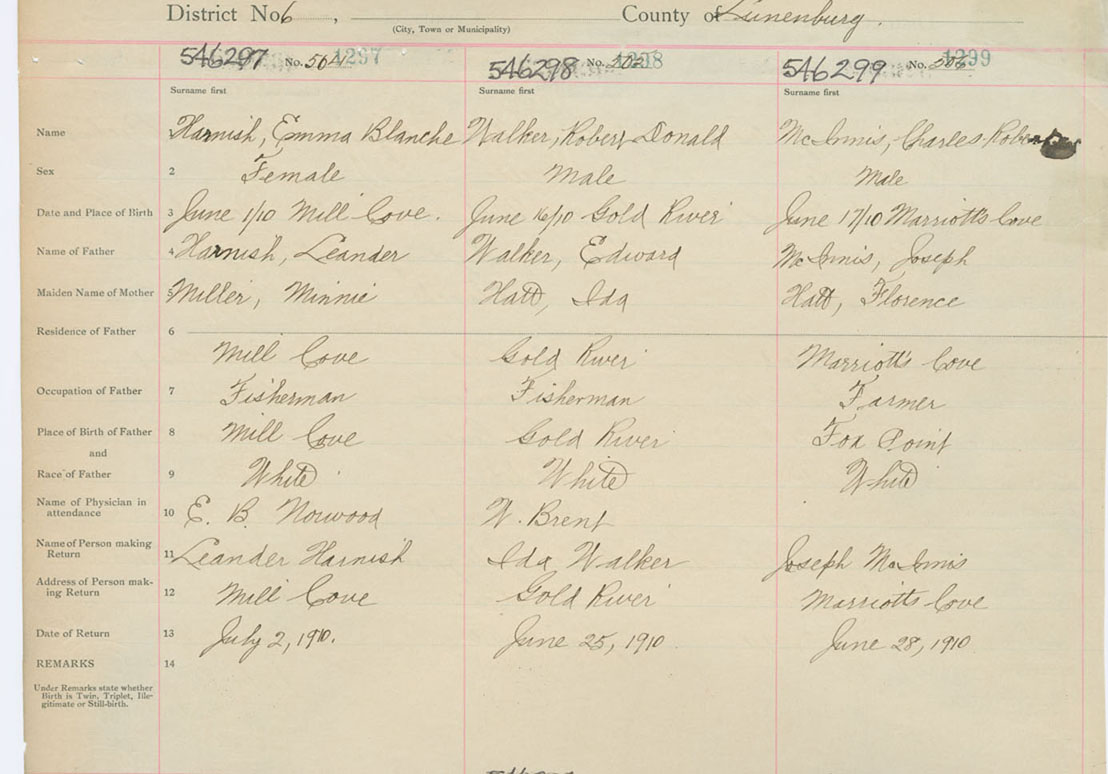 District No 6, County of Lunenburg.
(City, Town or Municipality)
546297 No. 501 1297 546298 No. 502 1298 546299 No. 503 1299
Surname first Surname first Surname first
Name Harnish, Emma Blanche Walker, Robert Donald McInnis, Charles Robert
Sex 2 Female Male Male
Date and Place of Birth 3 June 1/10 Mill Cove. June 16/10 Gold River June 17/10 Marriott's Cove
Name of Father 4 Harnish, Leander Walker, Edward McInnis, Joseph
Maiden Name of Mother 5 Miller, Minnie Hatt, Ida Hatt, Florence
Residence of Father 6
Mill Cove Gold River Marriott's Cove
Occupation of Father 7 Fisherman Fisherman Farmer
Place of Birth of Father 8 Mill Cove Gold River Fox Point
and
Race of Father 9 White White White
Name of Physician in
attendance 10 E. B. Norwood W. Brent
Name of Person making
Return 11 Leander Harnish Ida Walker Joseph McInnis
Address of Person mak-
ing Return 12 Mill Cove Gold River Marriotts Cove
Date of Return 13 July 2, 1910. June 25, 1910 June 28, 1910
REMARKS 14
Under Remarks state whether
Birth is Twin, Triplet, Ille-
gitimate or Still-birth.